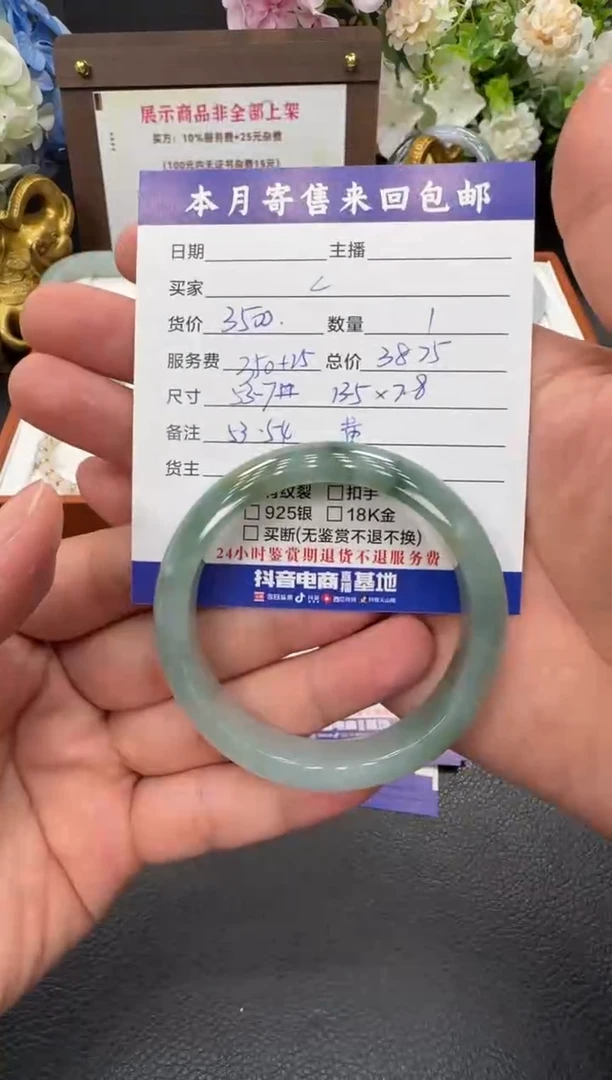 展示商品非全部上架
买方：10%服务费+25元杂费
(100元内无证书杂费15元)
本月寄售来回包邮
日期 主播
买家
货价 3500. 数量 1
服务费 350+25 总价 3875
尺寸 53-7# 13.5×7.8
备注 53-54
货主
纹裂 □扣手
□925银 □18K金
□买断(无鉴赏不退不换)
24小时鉴赏期退货不退服务费
抖音电商直播基地
今日头条 抖音 西瓜视频 抖音火山版